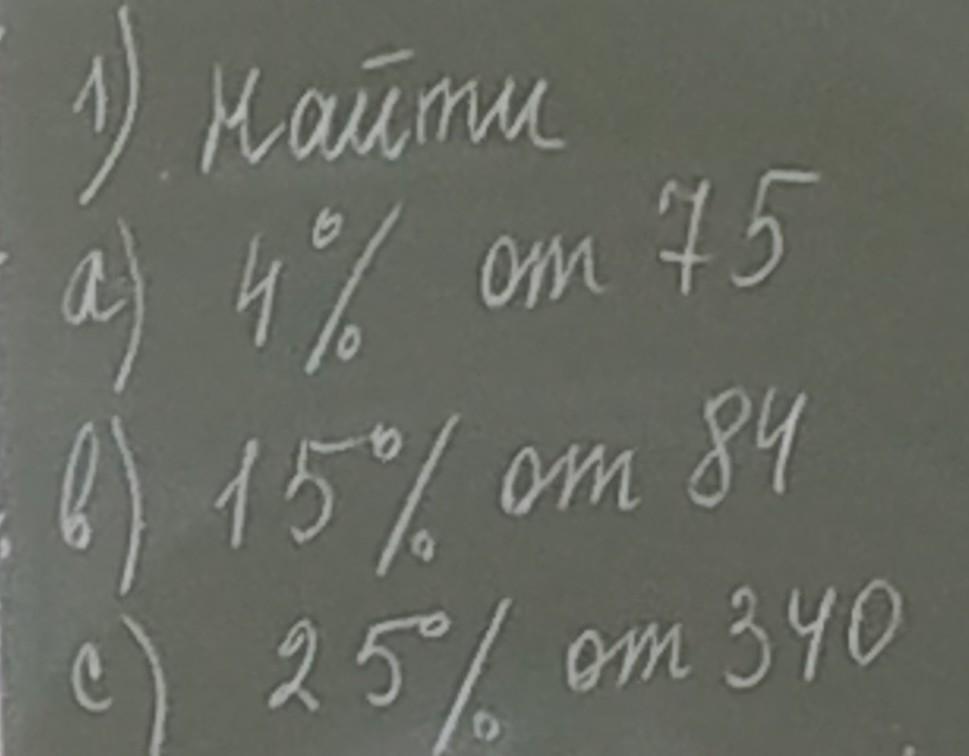 1) Найти
a) 4% от 75
b) 15% от 84
c) 25% от 340